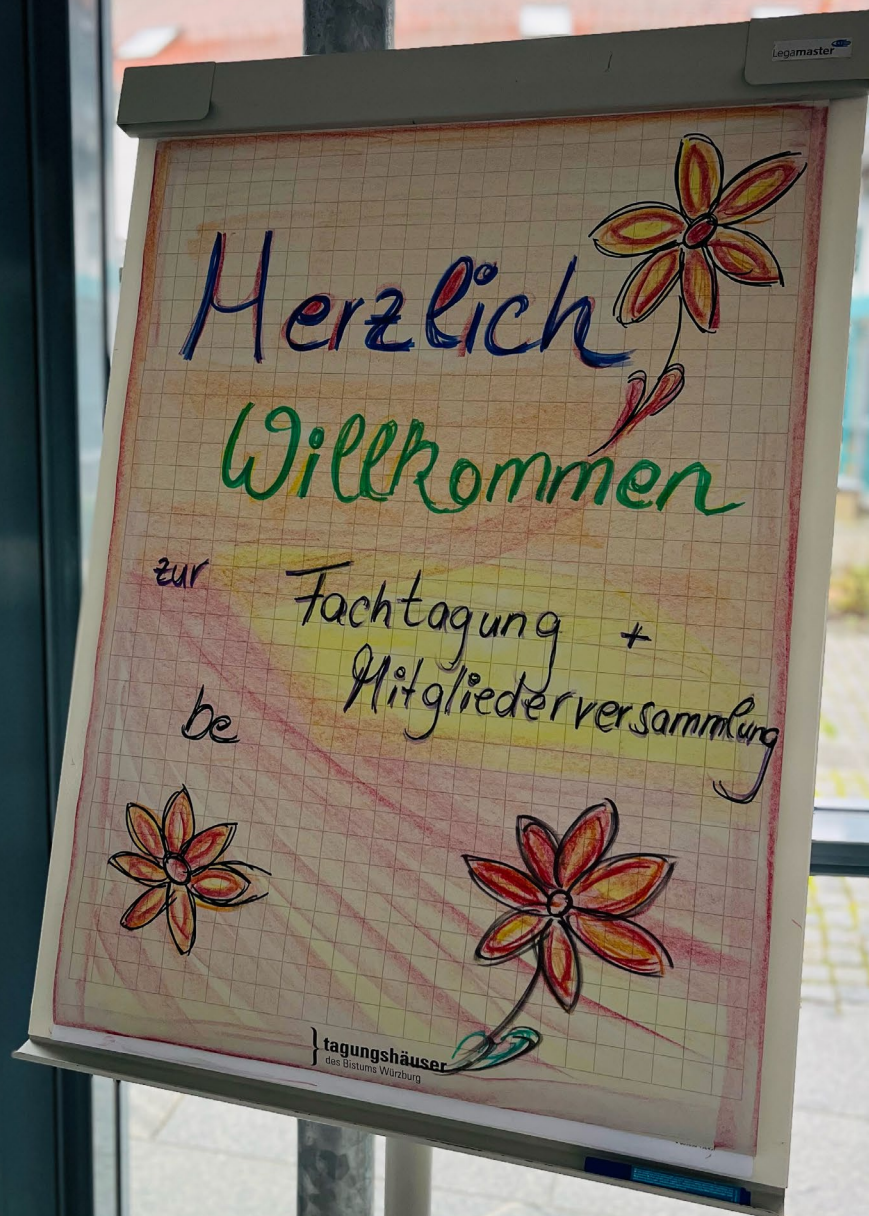 Legamaster
Herzlich
Willkommen
zur Fachtagung +
Mitgliederversammlung
be
} tagungshäuser
des Bistums Würzburg